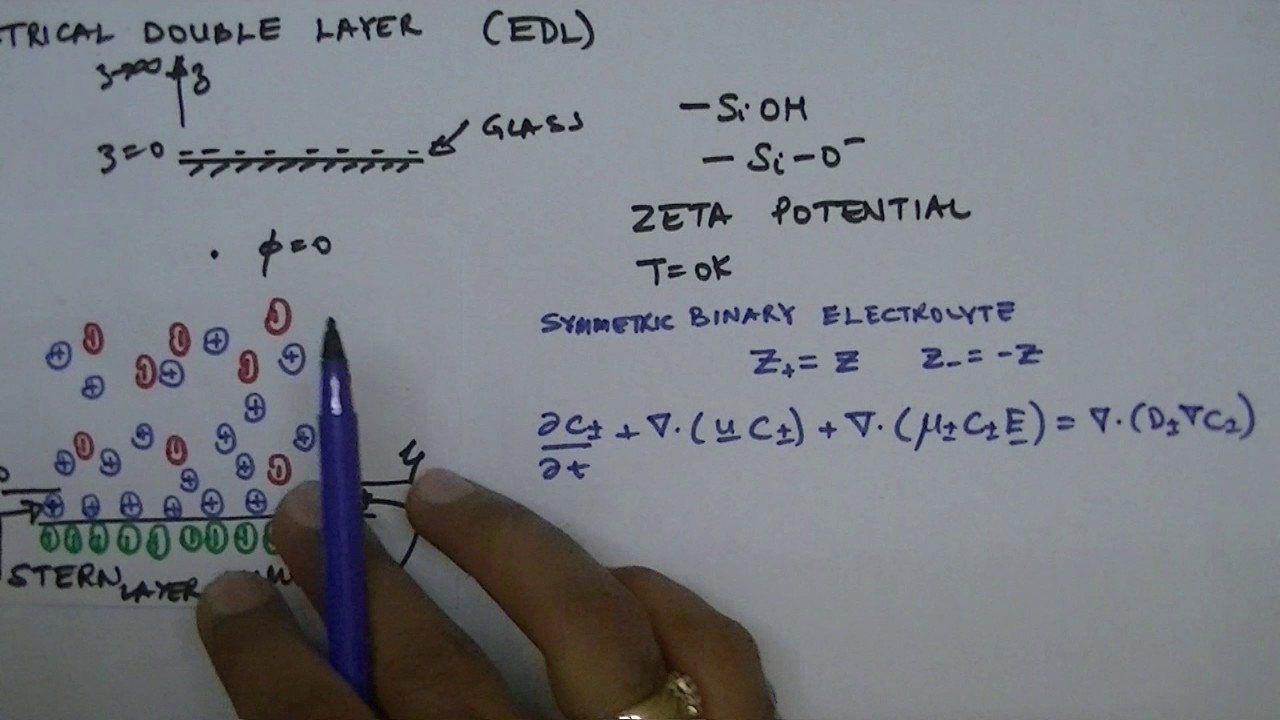 TRICAL DOUBLE LAYER (EDL)
z→∞ z
z=0
GLASS
-SiOH
-Si-O⁻
ZETA POTENTIAL
T=0K
ϕ=0
SYMMETRIC BINARY ELECTROLYTE
Z₊=Z Z₋=-Z
∂C±/∂t + ∇·(u C±) + ∇·(μ±C±E) = ∇·(D±∇C±)
STERN LAYER